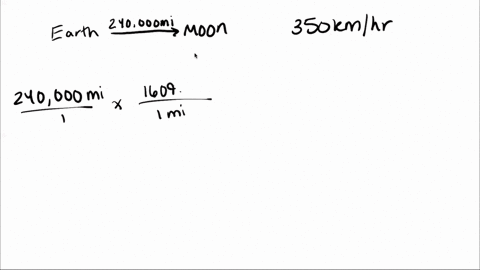 Earth 240,000mi MOON 350km/hr
240,000 mi x 1609.
1 1 mi